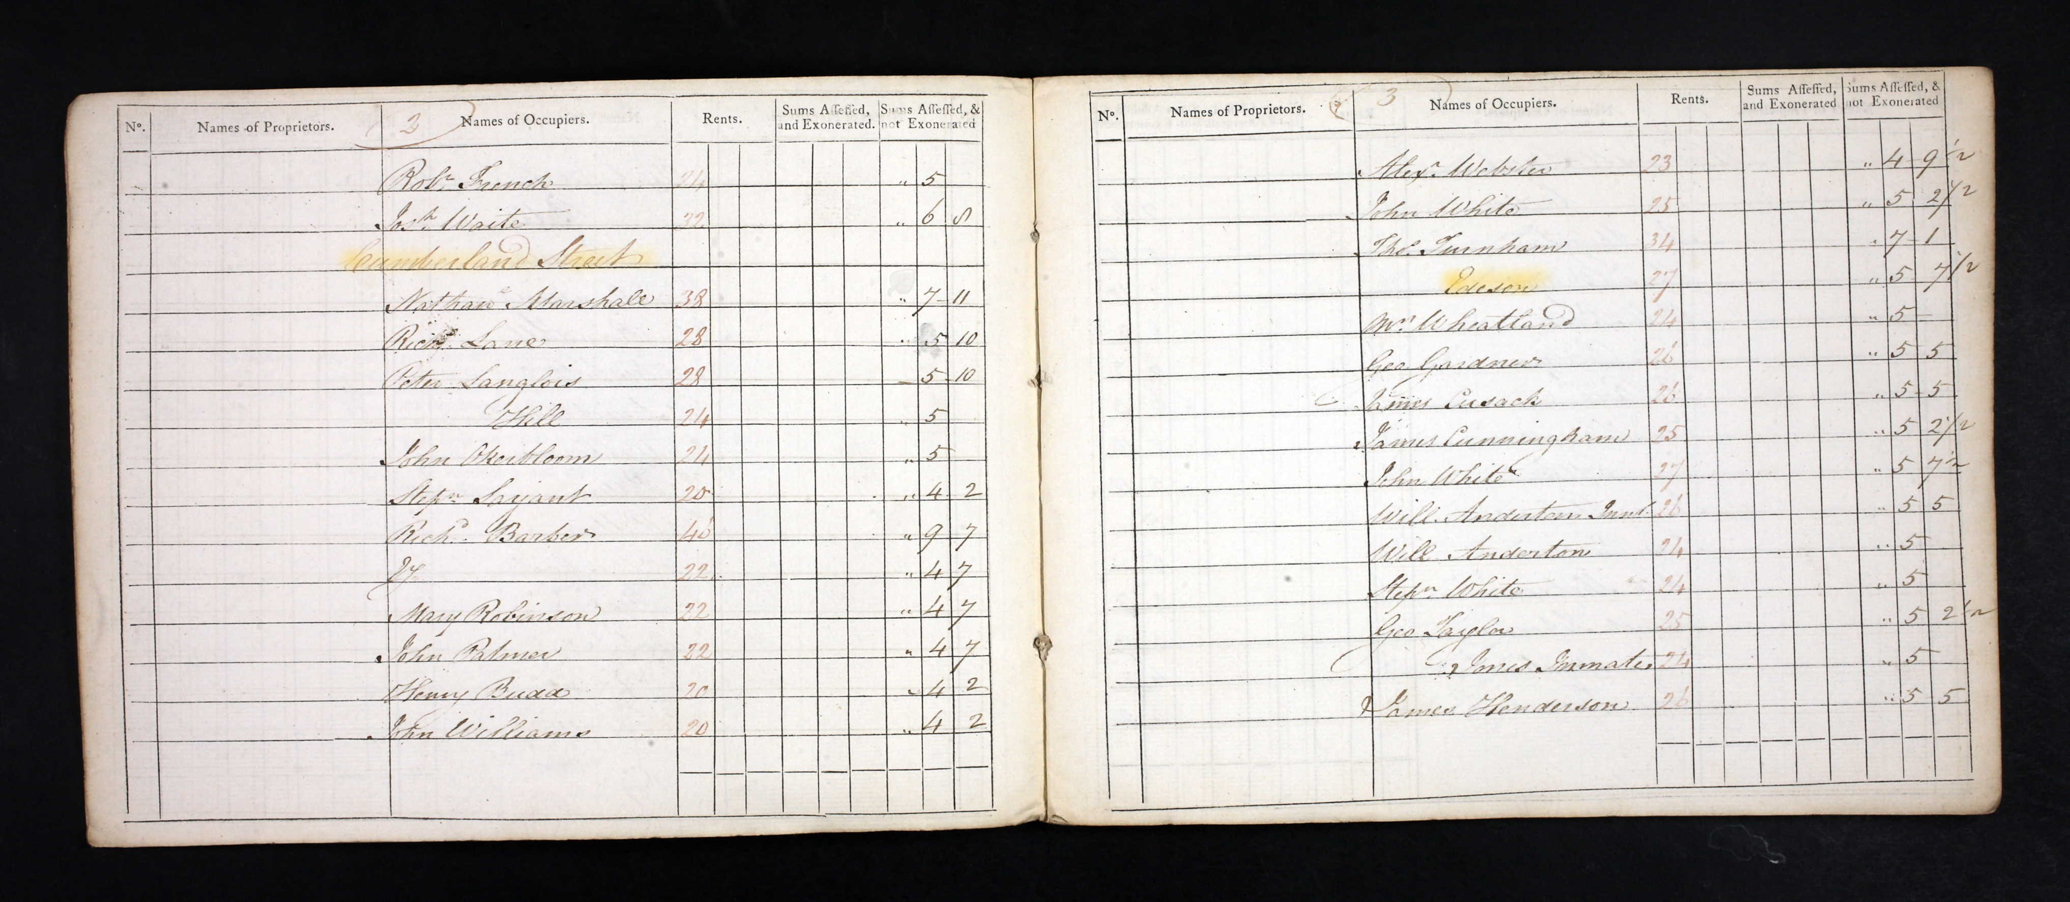 2
Nº. Names of Proprietors. Names of Occupiers. Rents. Sums Assessed, and Exonerated. Sums Assessed, & not Exonerated
Robt. French 24 " 5
Josh. Waite 32 " 6 8
Cumberland Street
Nathan Marshall 38 " 7 11
Richd. Lane 28 " 5 10
Peter Langlois 28 5 10
Hill 24 " 5
John Okerbloom 24 " 5
Stepn. Sarjant 20 " 4 2
Richd. Barber 46 " 9 7
22 " 4 7
Mary Robinson 22 " 4 7
John Palmer 22 " 4 7
Henry Budd 20 " 4 2
John Williams 20 " 4 2
3
Nº. Names of Proprietors. Names of Occupiers. Rents. Sums Assessed, and Exonerated Sums Assessed, & not Exonerated
Alexr. Webster 23 " 4 9 1/2
John White 25 " 5 2 1/2
Thos. Turnham 34 " 7 1
Edeson 27 " 5 7 1/2
Mrs. Wheatland 24 " 5
Geo Gardner 26 " 5 5
James Cusack 26 " 5 5
James Cunningham 25 " 5 2 1/2
John White 27 " 5 7 1/2
Will. Anderton Junr. 26 " 5 5
Will Anderton 24 " 5
Stepn. White 24 " 5
Geo Taylor 25 " 5 2 1/2
Jones Inmates 24 " 5
James Henderson 26 " 5 5